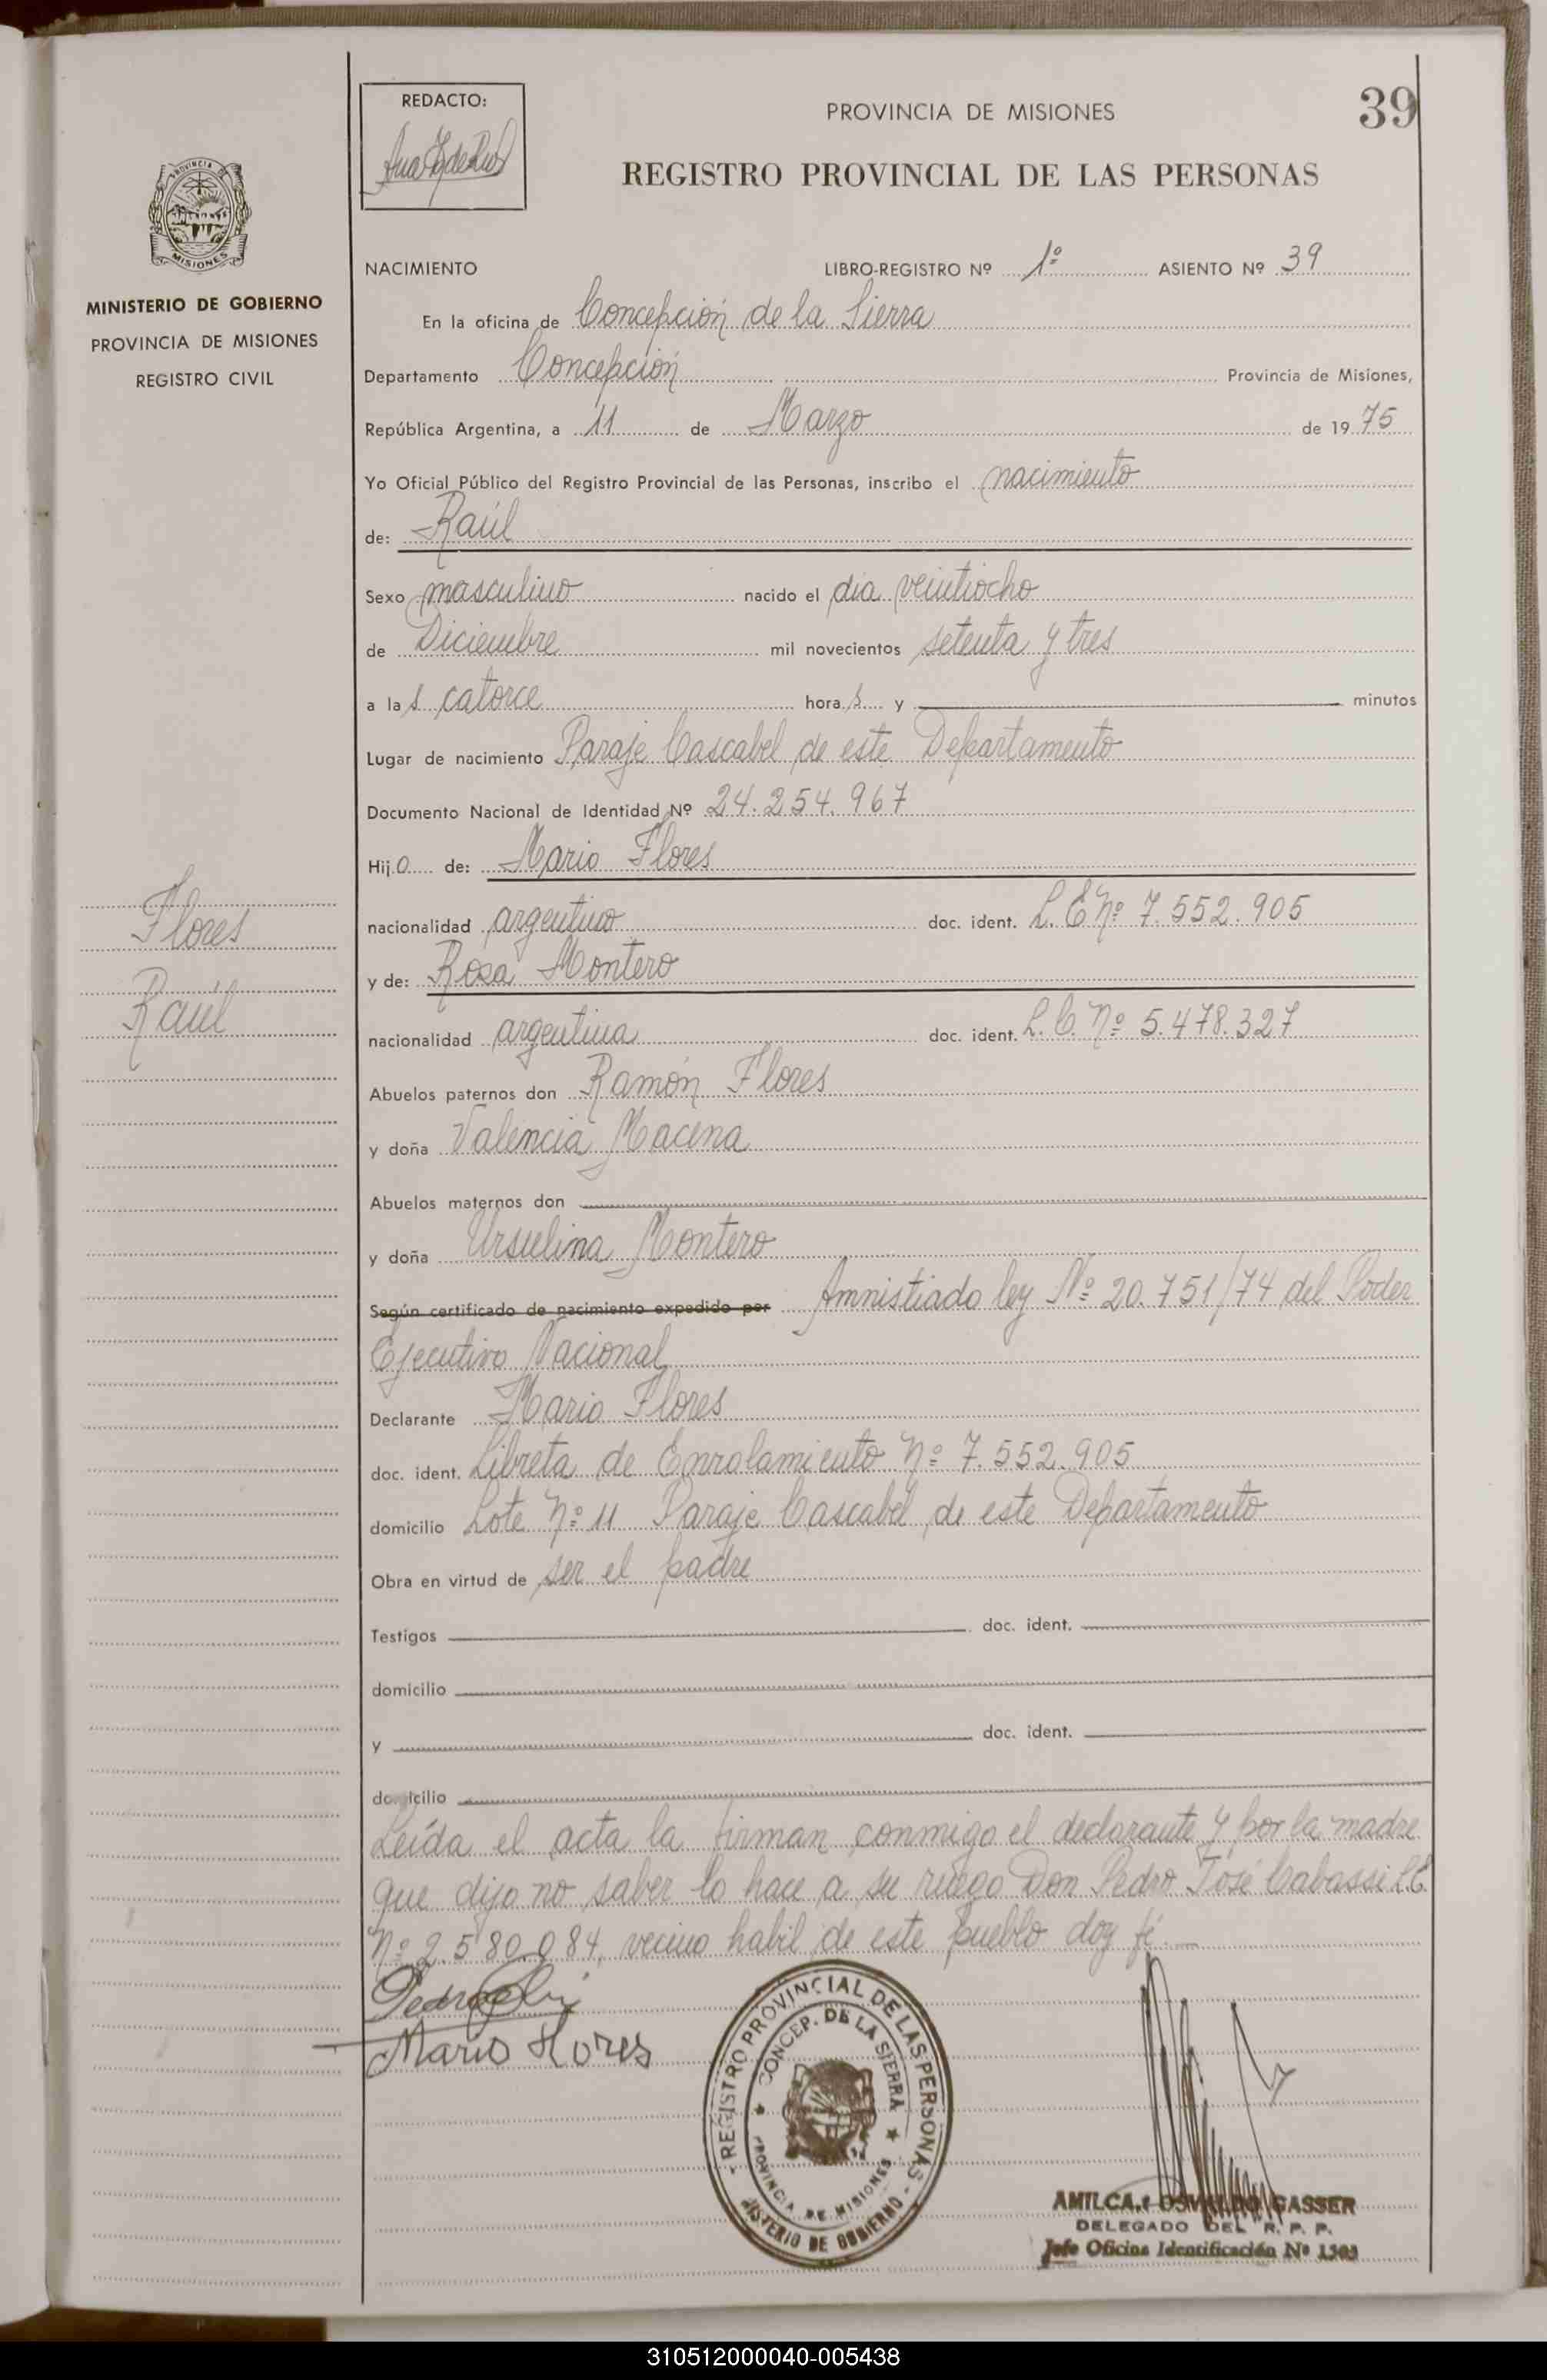 39
REDACTO:
PROVINCIA DE MISIONES
REGISTRO PROVINCIAL DE LAS PERSONAS
PROVINCIA DE
MISIONES
MINISTERIO DE GOBIERNO
PROVINCIA DE MISIONES
REGISTRO CIVIL
NACIMIENTO LIBRO-REGISTRO Nº 1º ASIENTO Nº 39
En la oficina de Concepción de la Sierra
Departamento Concepción Provincia de Misiones,
República Argentina, a 11 de Marzo de 19 75
Yo Oficial Público del Registro Provincial de las Personas, inscribo el nacimiento
de: Raúl
Sexo masculino nacido el día veintiocho
de Diciembre mil novecientos setenta y tres
a la s catorce hora s y minutos
Lugar de nacimiento Paraje Cascabel de este Departamento
Documento Nacional de Identidad Nº 24.254.967
Hij o de: Mario Flores
nacionalidad argentino doc. ident. L. E Nº 7.552.905
y de: Rosa Montero
nacionalidad argentina doc. ident. L. C. Nº 5.478.327
Flores
Raúl
Abuelos paternos don Ramón Flores
y doña Valencia Macena
Abuelos maternos don
y doña Ursulina Montero
Según certificado de nacimiento expedido por Amnistiado ley Nº 20.751/74 del Poder
Ejecutivo Nacional
Declarante Mario Flores
doc. ident. Libreta de Enrolamiento Nº 7.552.905
domicilio Lote Nº 11 Paraje Cascabel, de este Departamento
Obra en virtud de ser el padre
Testigos doc. ident.
domicilio
y doc. ident.
domicilio
Leída el acta la firman conmigo el declarante y por la madre
que dijo no saber lo hace a su ruego Don Pedro José Cabassi L.E.
Nº 2.580.084, vecino habil de este pueblo doy fé.
Mario Flores
REGISTRO PROVINCIAL DE LAS PERSONAS
CONCEP. DE LA SIERRA
PROVINCIA DE MISIONES
MISTERIO DE GOBIERNO
AMILCAR OSVALDO GASSER
DELEGADO DEL R. P. P.
Jefe Oficina Identificación Nº 1303
310512000040-005438